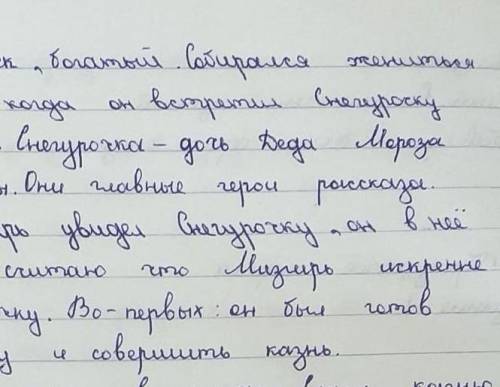 к, богатый. Собирался жениться
когда он встретил Снегурочку
Снегурочка - дочь Деда Мороза
ы. Они главные герои рассказа.
рь увидел Снегурочку, он в неё
считаю что Мизгирь искренне
чку. Во-первых: он был готов
у и совершить казнь.